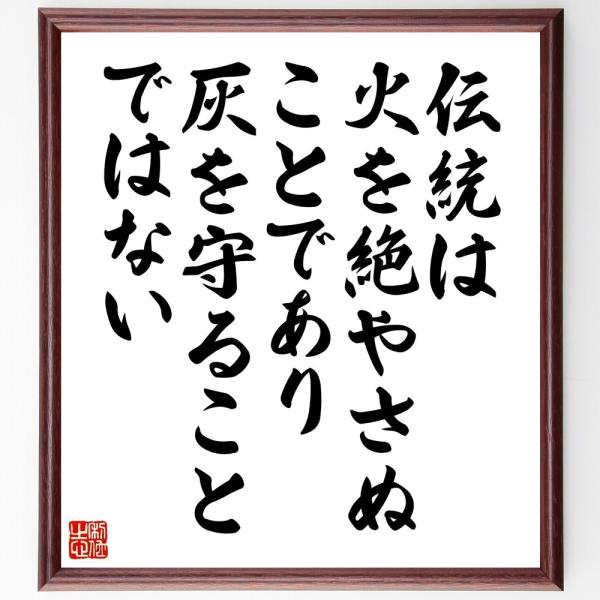 伝統は
火を絶やさぬ
ことであり
灰を守ること
ではない